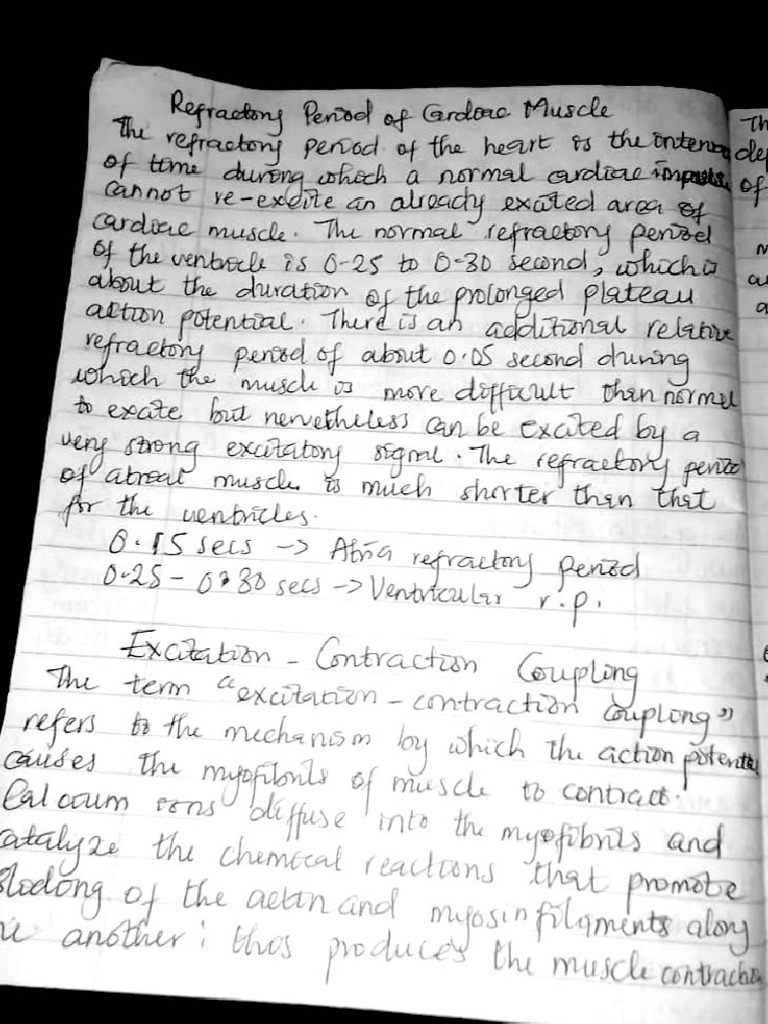 Refractory Period of Cardiac Muscle
The refractory period of the heart is the interval
of time during which a normal cardiac impulse
cannot re-excite an already excited area of
cardiac muscle. The normal refractory period
of the ventricle is 0.25 to 0.30 second, which is
about the duration of the prolonged plateau
action potential. There is an additional relative
refractory period of about 0.05 second during
which the muscle is more difficult than normal
to excite but nevertheless can be excited by a
very strong excitatory signal. The refractory period
of atreal muscle is much shorter than that
for the ventricles.
0.15 secs -> Atria refractory period
0.25 - 0.30 secs -> Ventricular r.p.
Excitation - Contraction Coupling
The term "excitation - contraction coupling"
refers to the mechanism by which the action potential
causes the myofibrils of muscle to contract.
Calcium ions diffuse into the myofibrils and
catalyze the chemical reactions that promote
sliding of the actin and myosin filaments along
another; this produces the muscle contraction
Th
dep
of